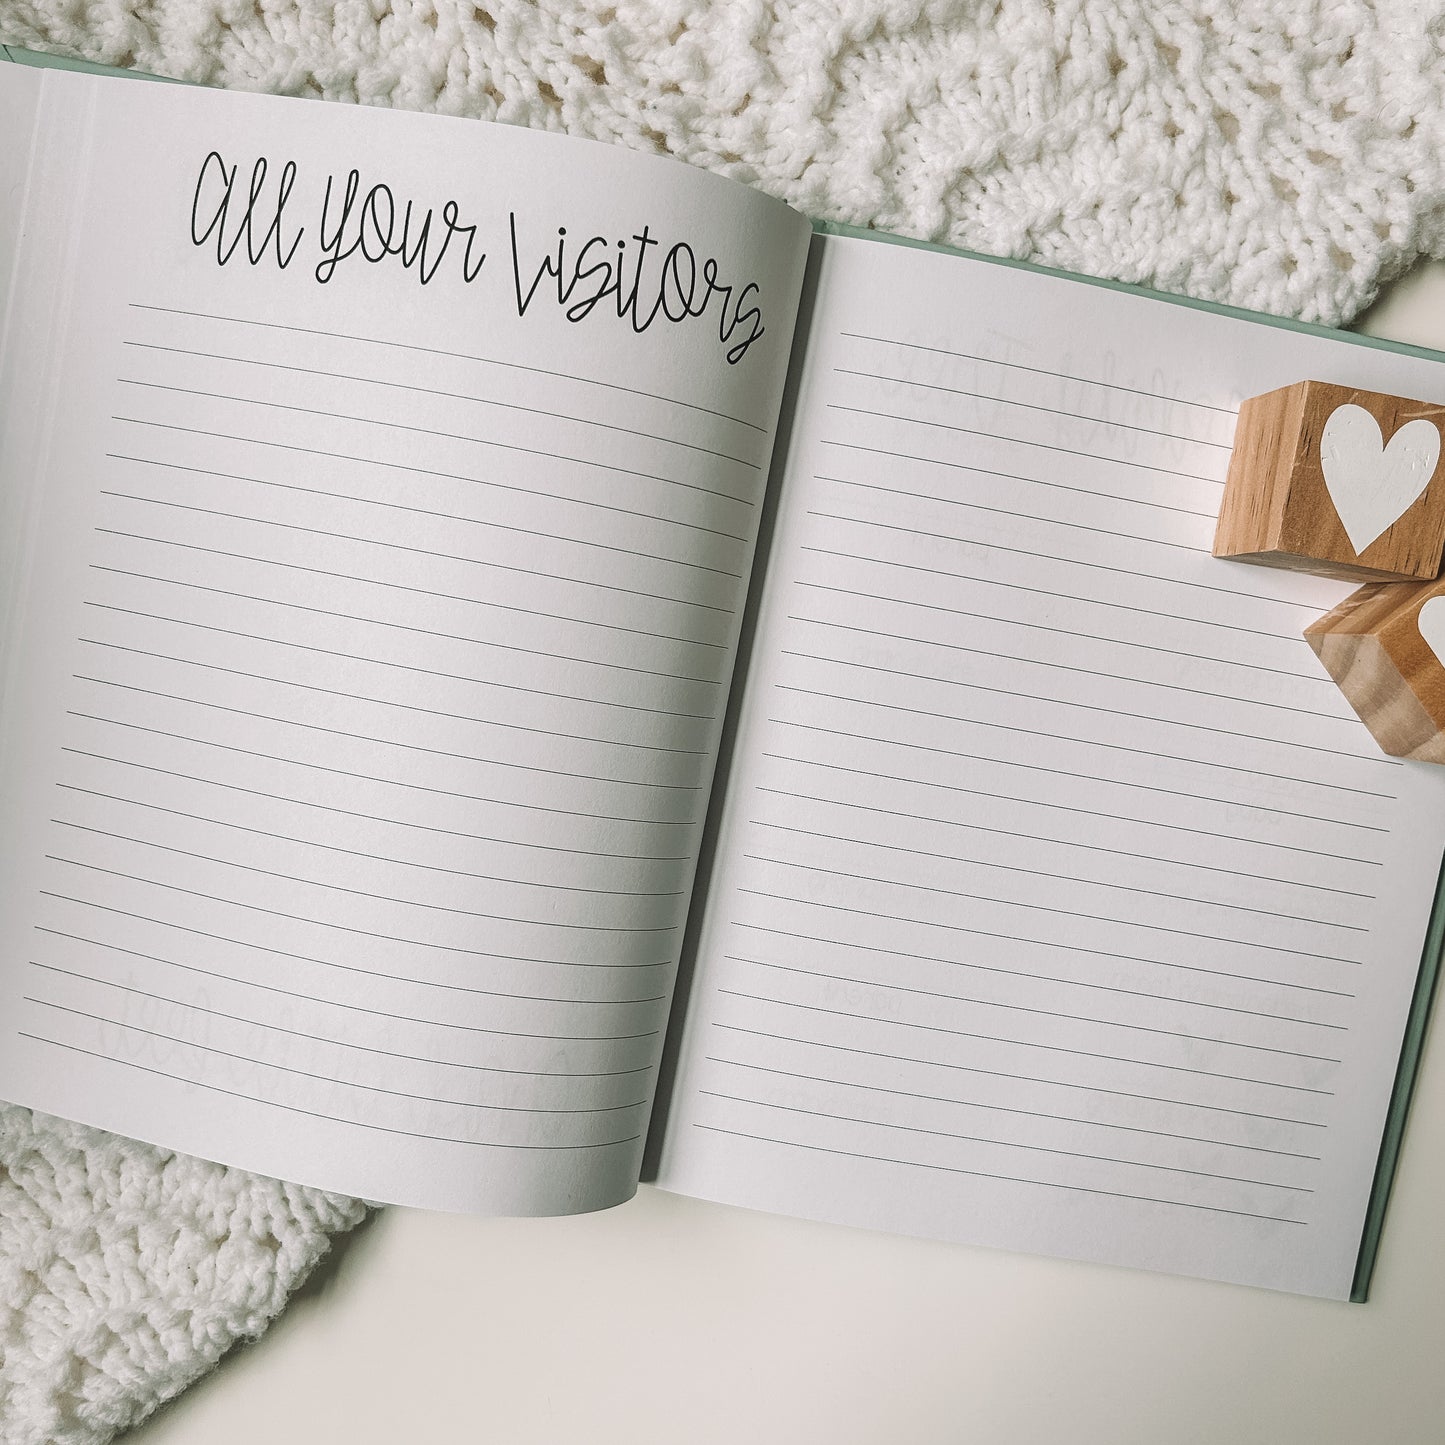 all your visitors